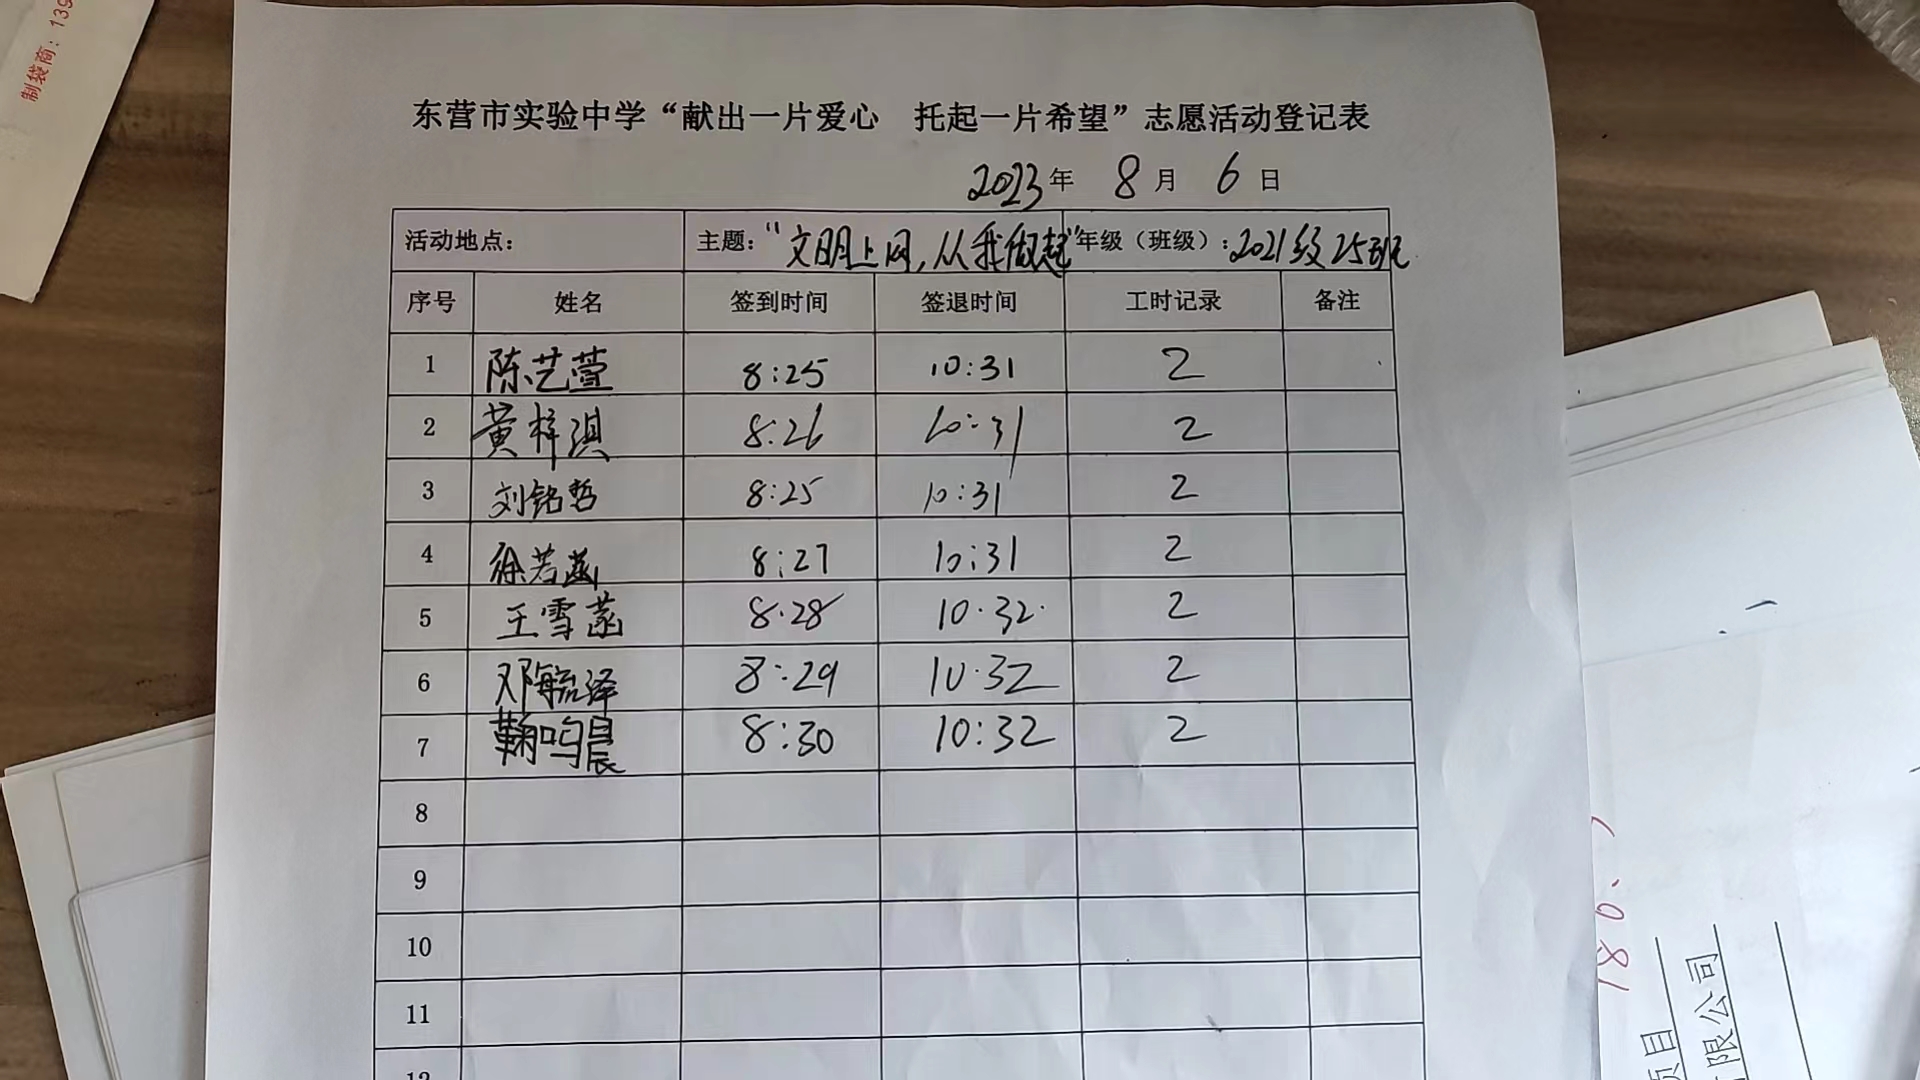 制袋商：139
东营市实验中学“献出一片爱心 托起一片希望”志愿活动登记表
2023年 8月 6日
活动地点： 主题：“文明上网，从我做起” 年级（班级）：2021级25班
序号 姓名 签到时间 签退时间 工时记录 备注
1 陈艺萱 8:25 10:31 2
2 黄梓淇 8:26 10:31 2
3 刘铭哲 8:25 10:31 2
4 徐若菡 8:27 10:31 2
5 王雪菡 8:28 10:32 2
6 邓毓泽 8:29 10:32 2
7 鞠鸣晨 8:30 10:32 2
8
9
10
11
12
180
项目
有限公司